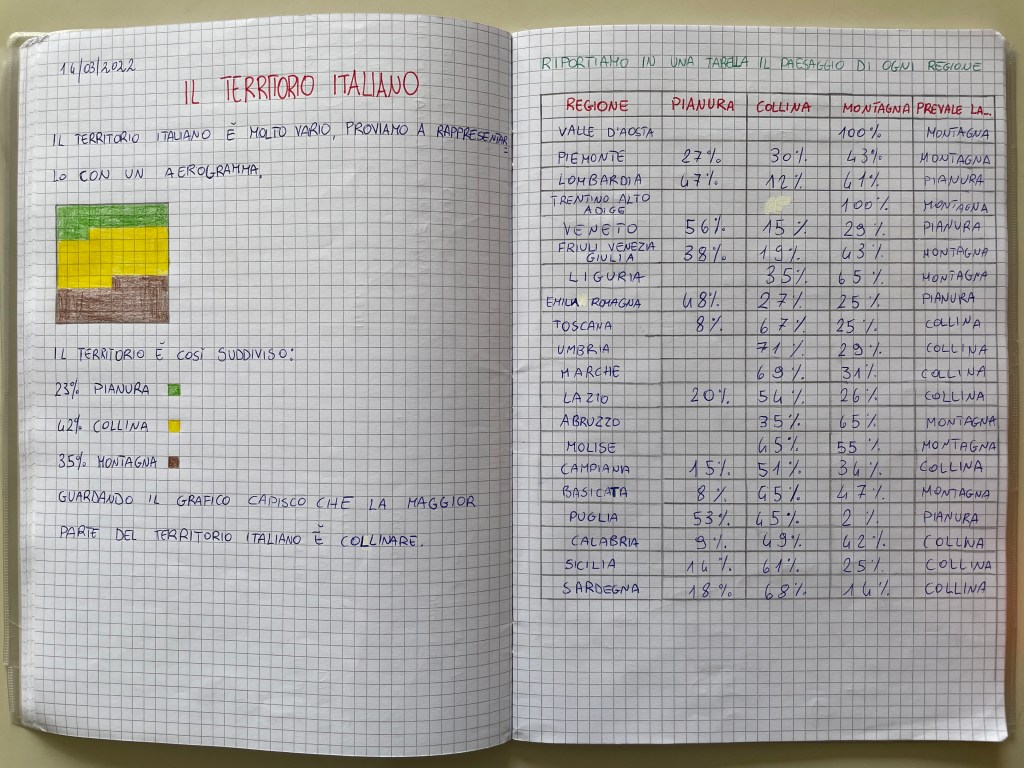 14/03/2022
IL TERRITORIO ITALIANO
IL TERRITORIO ITALIANO È MOLTO VARIO, PROVIAMO A RAPPRESENTAR
LO CON UN AEROGRAMMA.
IL TERRITORIO È COSÌ SUDDIVISO:
23% PIANURA
42% COLLINA
35% MONTAGNA
GUARDANDO IL GRAFICO CAPISCO CHE LA MAGGIOR
PARTE DEL TERRITORIO ITALIANO È COLLINARE.
RIPORTIAMO IN UNA TABELLA IL PAESAGGIO DI OGNI REGIONE
REGIONE PIANURA COLLINA MONTAGNA PREVALE LA...
VALLE D'AOSTA 100% MONTAGNA
PIEMONTE 27% 30% 43% MONTAGNA
LOMBARDIA 47% 12% 41% PIANURA
TRENTINO ALTO
ADIGE 100% MONTAGNA
VENETO 56% 15% 29% PIANURA
FRIULI VENEZIA
GIULIA 38% 19% 43% MONTAGNA
LIGURIA 35% 65% MONTAGNA
EMILIA ROMAGNA 48% 27% 25% PIANURA
TOSCANA 8% 67% 25% COLLINA
UMBRIA 71% 29% COLLINA
MARCHE 69% 31% COLLINA
LAZIO 20% 54% 26% COLLINA
ABRUZZO 35% 65% MONTAGNA
MOLISE 45% 55% MONTAGNA
CAMPIANIA 15% 51% 34% COLLINA
BASICATA 8% 45% 47% MONTAGNA
PUGLIA 53% 45% 2% PIANURA
CALABRIA 9% 49% 42% COLLINA
SICILIA 14% 61% 25% COLLINA
SARDEGNA 18% 68% 14% COLLINA